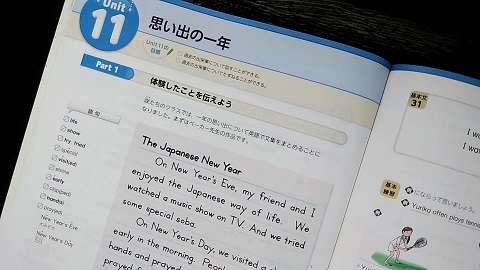 Unit
11
思い出の一年
Unit 11の
目標
過去の出来事について話すことができる。
過去の出来事についてたずねることができる。
Part 1
体験したことを伝えよう
咲たちのクラスでは、一年の思い出について英語で文集をまとめることに
なりました。まずはベーカー先生の作品です。
語句
life
show
try, tried
special
visit(ed)
shrine
early
clap(ped)
hand(s)
pray(ed)
New Year's Eve
New Year's Day
The Japanese New Year
On New Year's Eve, my friend and I
enjoyed the Japanese way of life. We
watched a music show on TV. And we tried
some special soba.
On New Year's Day, we visited a
early in the morning.
hands and prayed
prayed
基本文
31
I wa
I wa
基本
練習
にならって言いましょう。
Yuriko often plays tennis